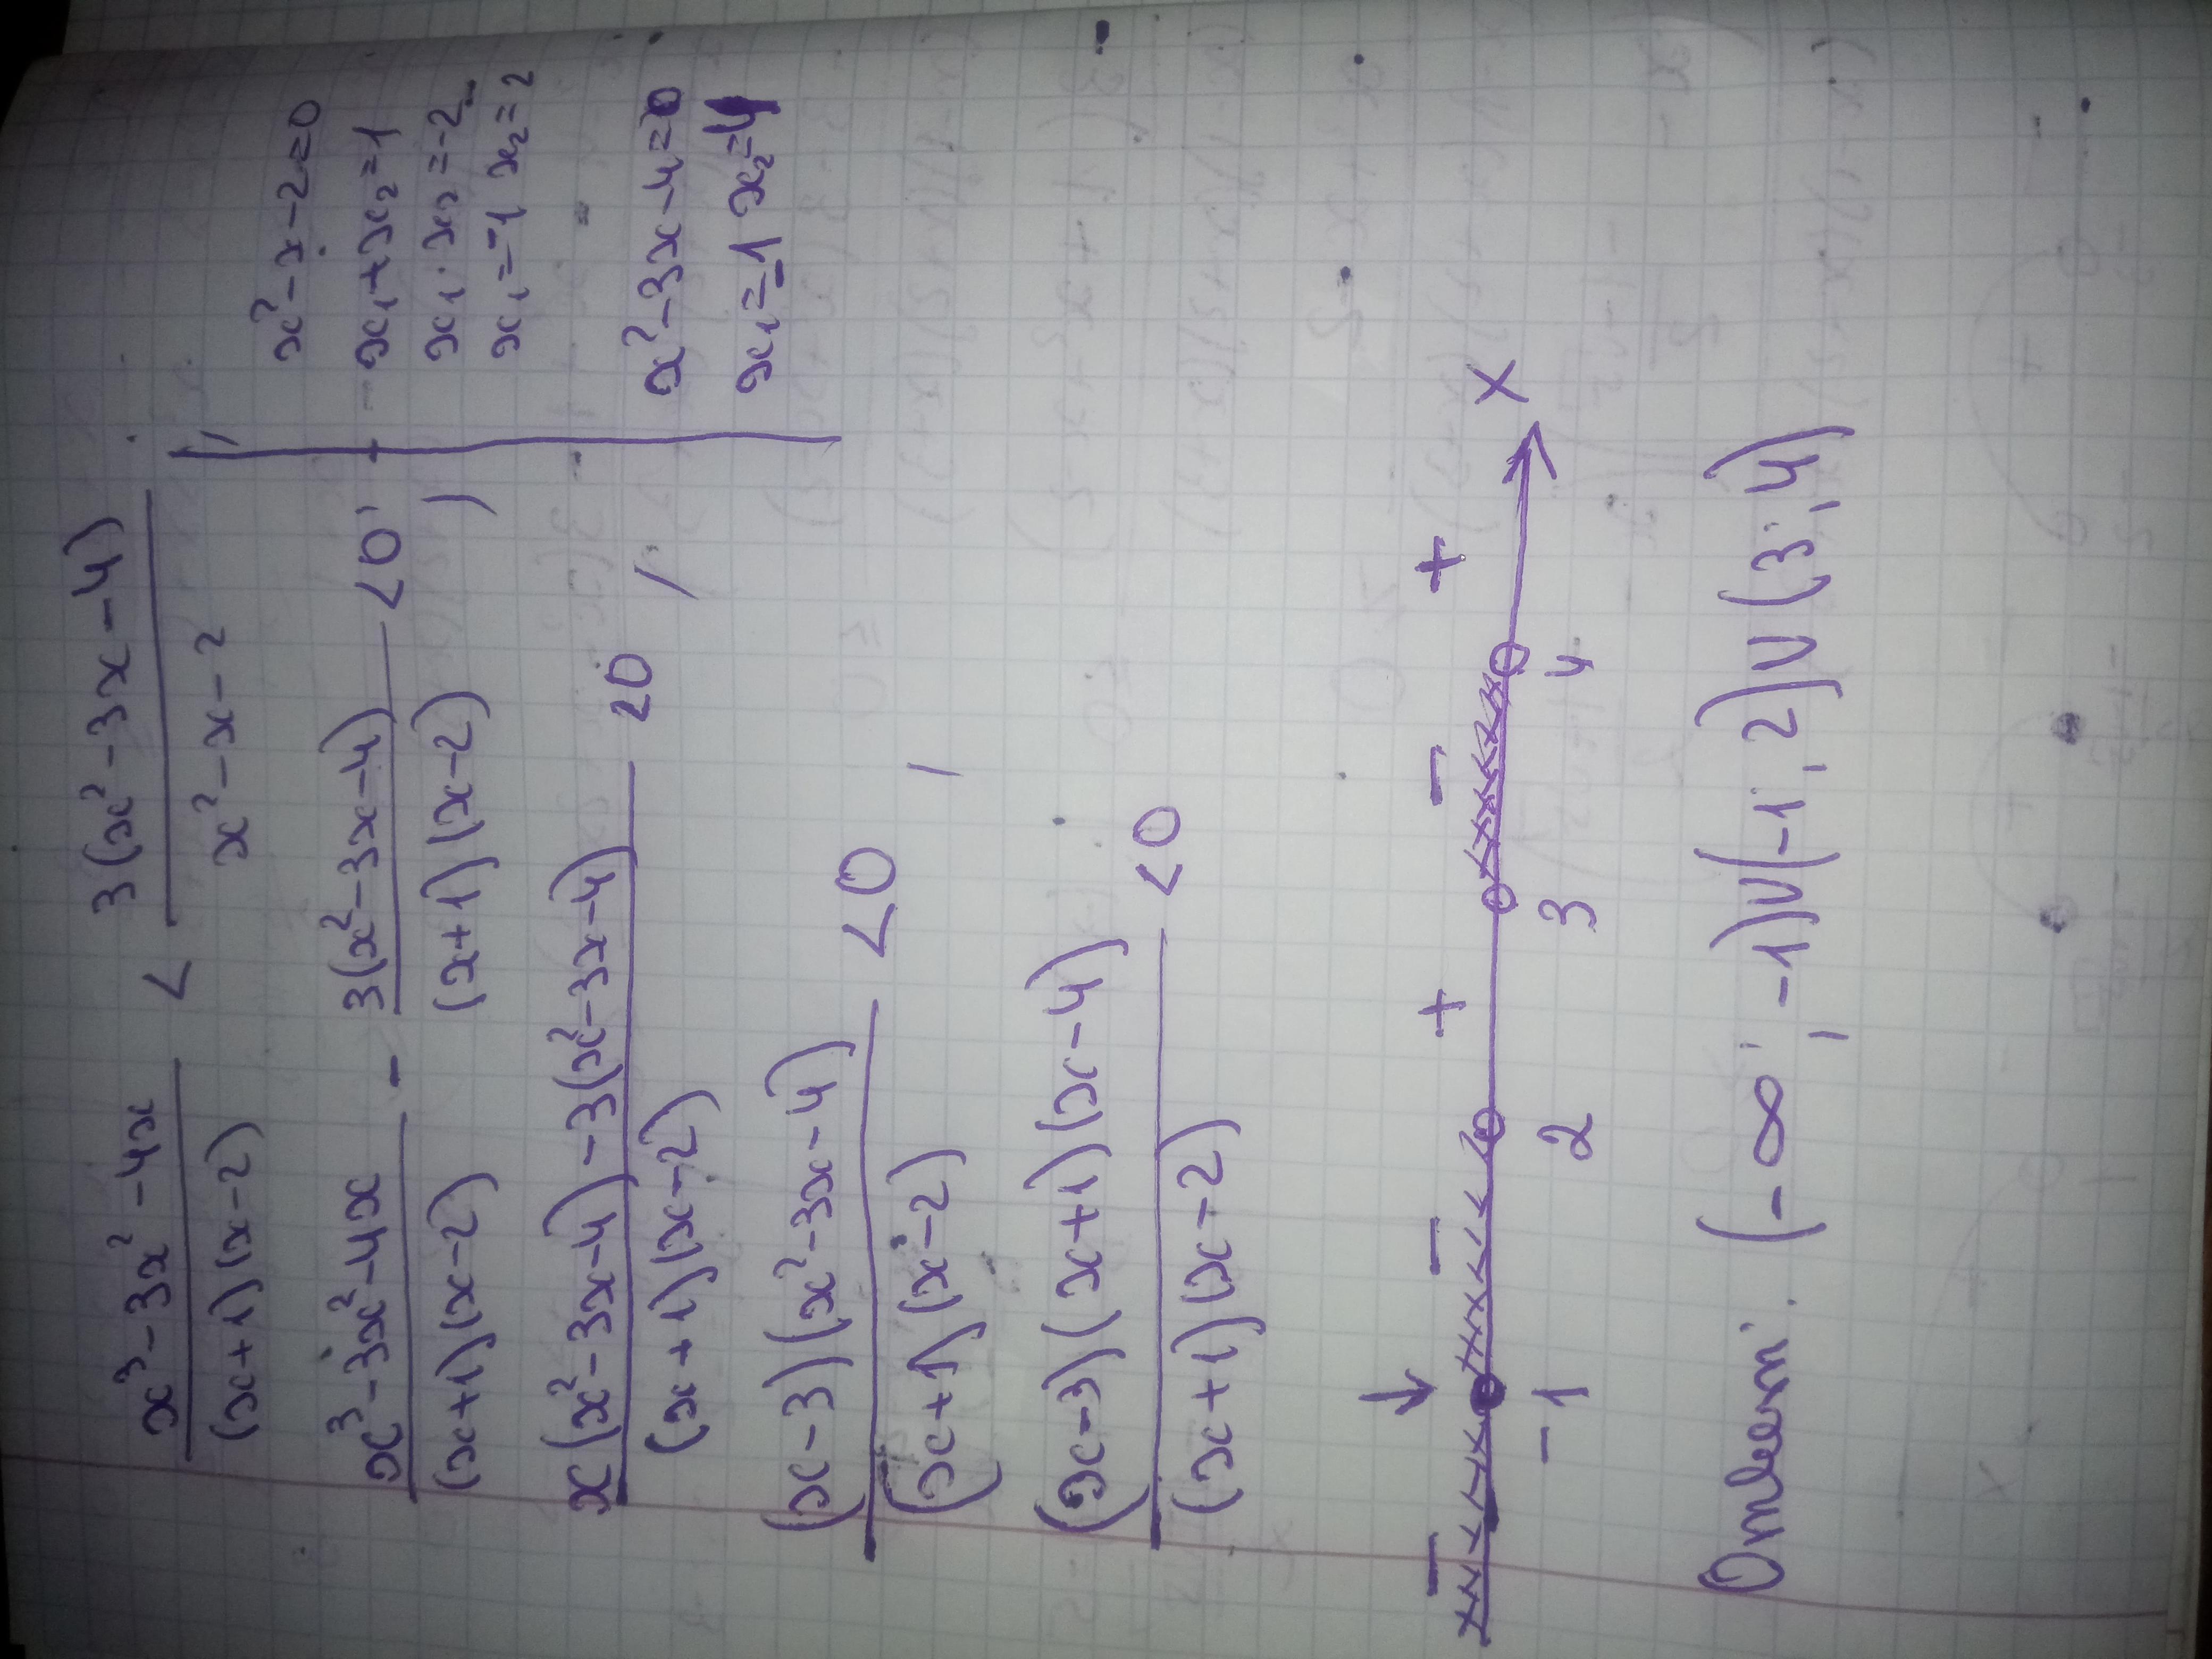 x³-3x²-4x / (x+1)(x-2) < 3(x²-3x-4) / x²-x-2
x³-3x²-4x / (x+1)(x-2) - 3(x²-3x-4) / (x+1)(x-2) <0
x(x²-3x-4)-3(x²-3x-4) / (x+1)(x-2) <0
(x-3)(x²-3x-4) / (x+1)(x-2) <0
(x-3)(x+1)(x-4) / (x+1)(x-2) <0
x²-x-2=0
x₁+x₂=1
x₁·x₂=-2
x₁=-1 x₂=2
x²-3x-4=0
x₁=-1 x₂=4
- - + - +
-1 2 3 4 X
Ответ: (-∞; -1)∪(-1; 2)∪(3; 4)